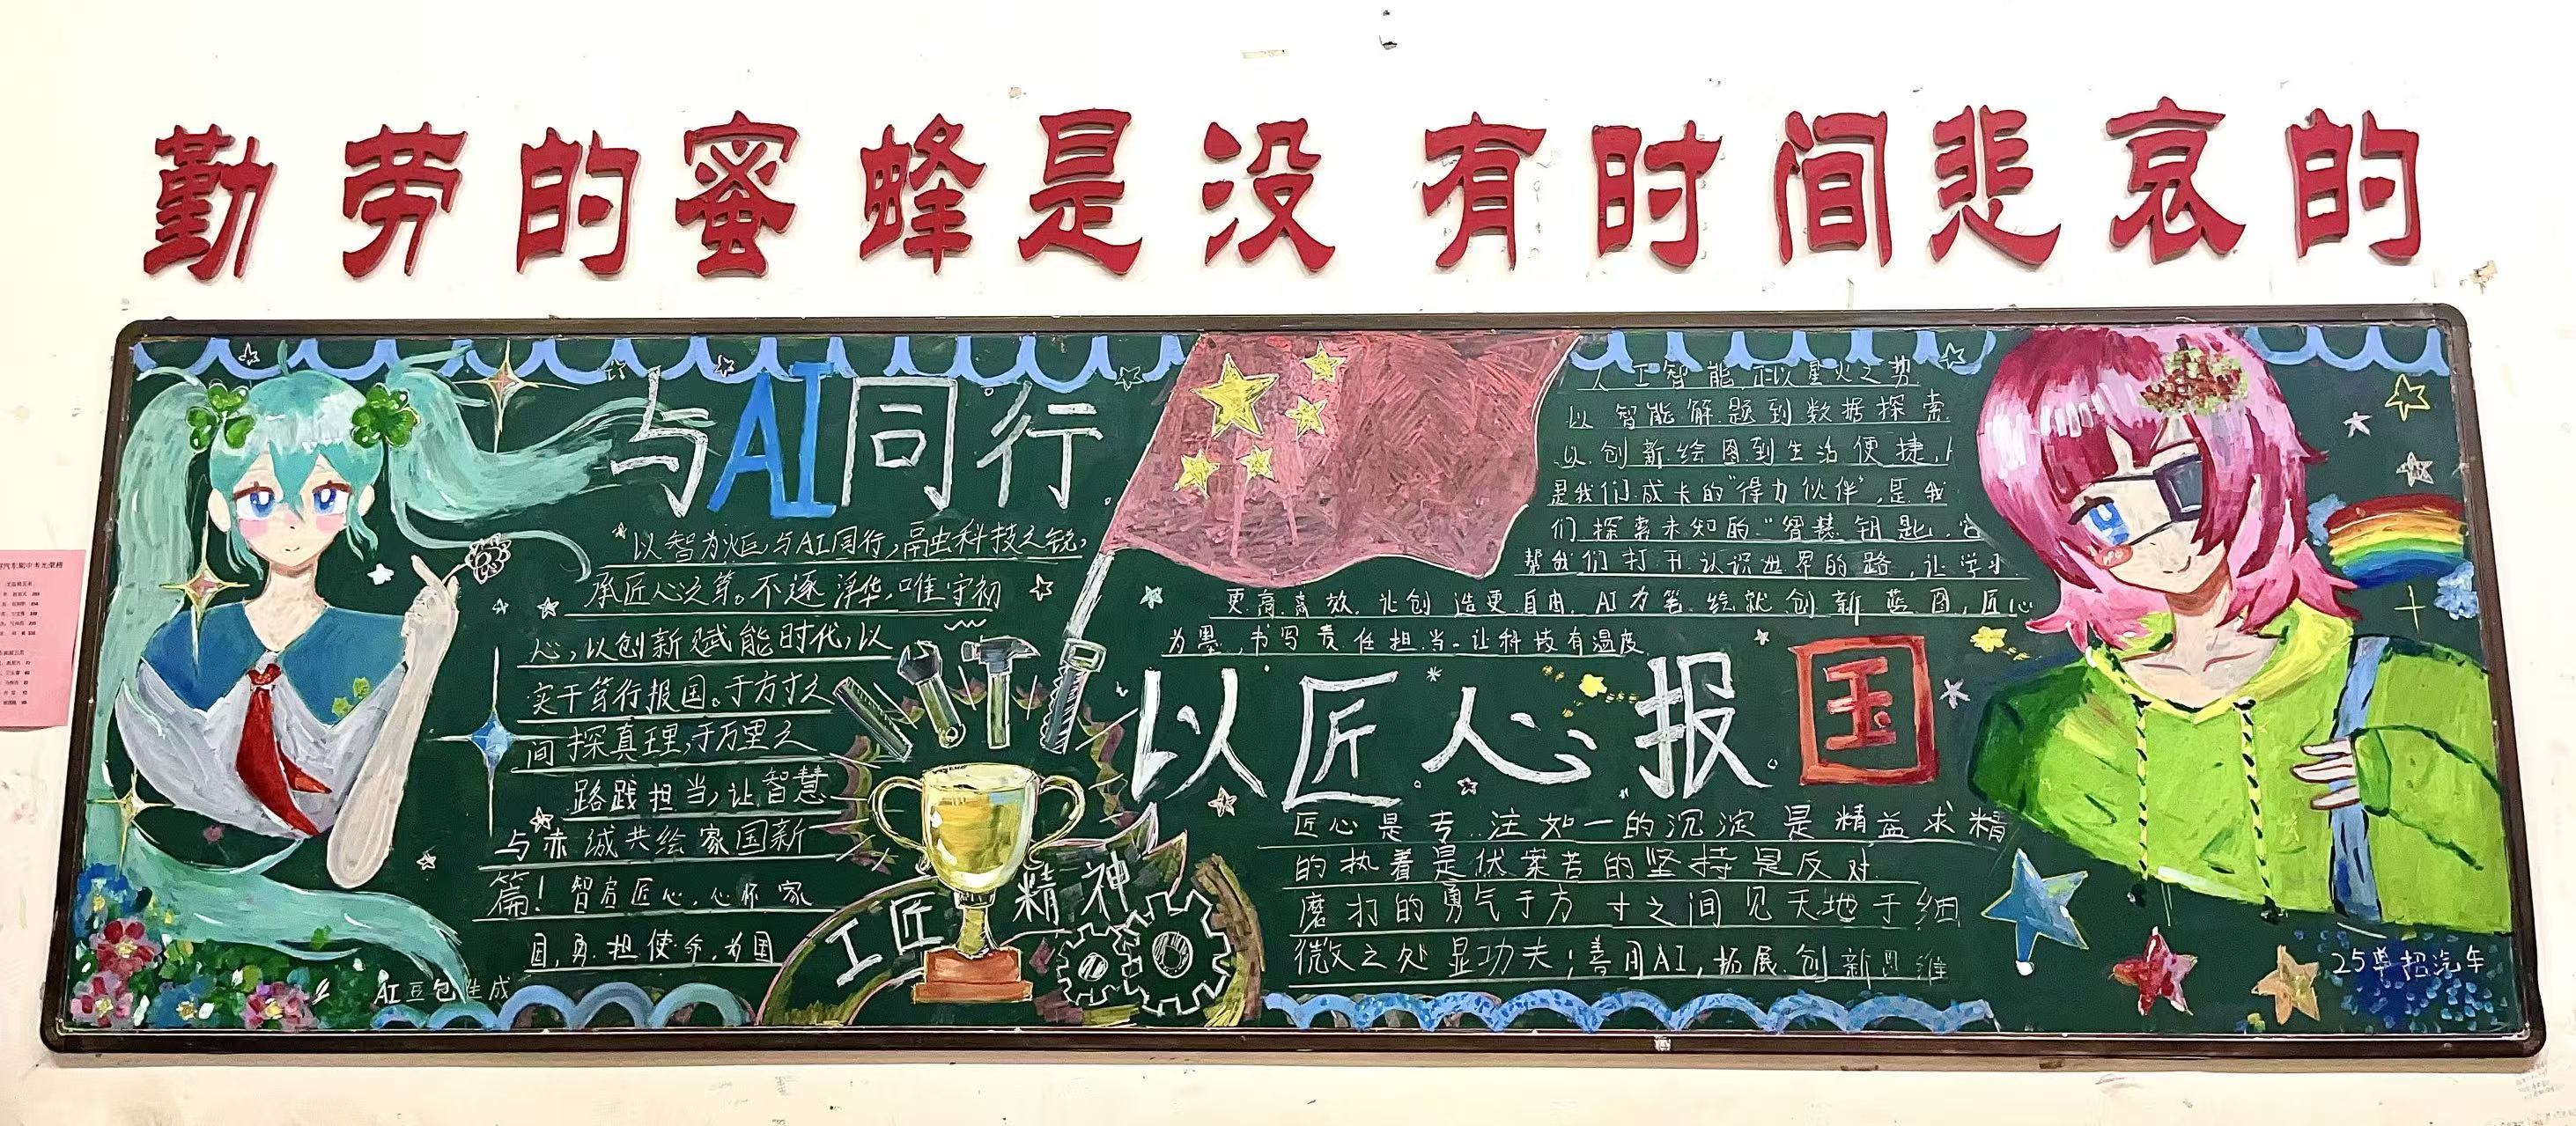 勤劳的蜜蜂是没有时间悲哀的
与AI同行
以智为炬,与AI同行,融科技之锐,
承匠心之笃。不逐浮华,唯守初
心,以创新赋能时代,以
实干笃行报国。于方寸之
间探真理,于万里之
路践担当,让智慧
与赤诚共绘家国新
篇!智启匠心,心怀家
国,勇担使命,为国
AI豆包生成
人工智能,正以星火之势
以智能解题到数据探索
以创新绘图到生活便捷,
是我们成长的“得力伙伴”,是我
们探索未知的“智慧钥匙,它
帮我们打开认识世界的路,让学习
更高高效,让创造更自由,AI为笔,绘就创新蓝图,匠心
为墨,书写责任担当。让科技有温度
以匠人心报国
匠心是专注如一的沉淀是精益求精
的执着是伏案苦的坚持是反对
磨打的勇气于方寸之间见天地于细
微之处显功夫;善用AI,拓展创新思维
工匠精神
25单招汽车